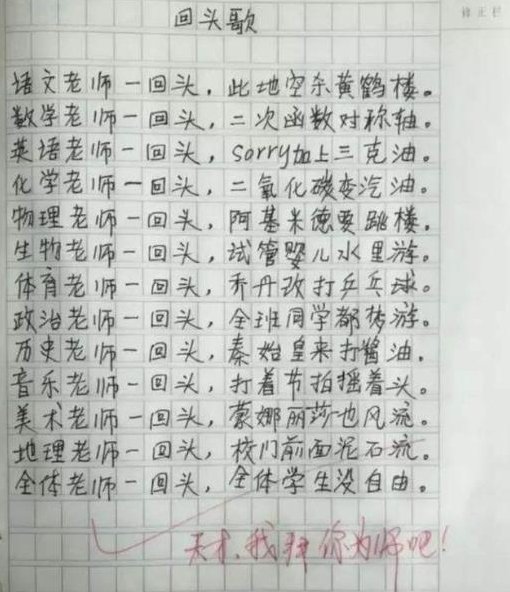 回头歌
语文老师一回头，此地空余黄鹤楼。
数学老师一回头，二次函数对称轴。
英语老师一回头，sorry加上三克油。
化学老师一回头，二氧化碳变汽油。
物理老师一回头，阿基米德要跳楼。
生物老师一回头，试管婴儿水里游。
体育老师一回头，乔丹改打乒乓球。
政治老师一回头，全班同学都梦游。
历史老师一回头，秦始皇来打酱油。
音乐老师一回头，打着节拍摇着头。
美术老师一回头，蒙娜丽莎也风流。
地理老师一回头，校门前面泥石流。
全体老师一回头，全体学生没自由。
天才，我拜你为师吧！
修正栏